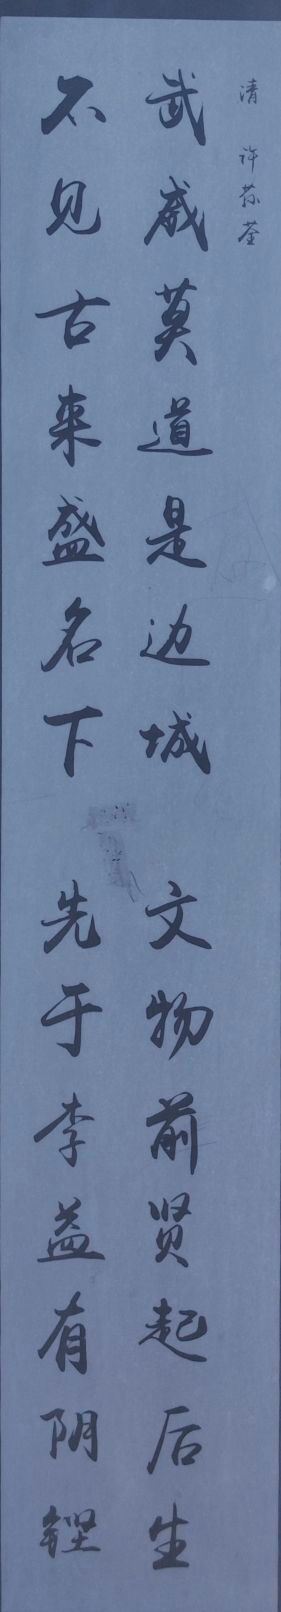 清 许荪荃
武威莫道是边城 文物前贤起后生
不见古来盛名下 先于李益有阴铿